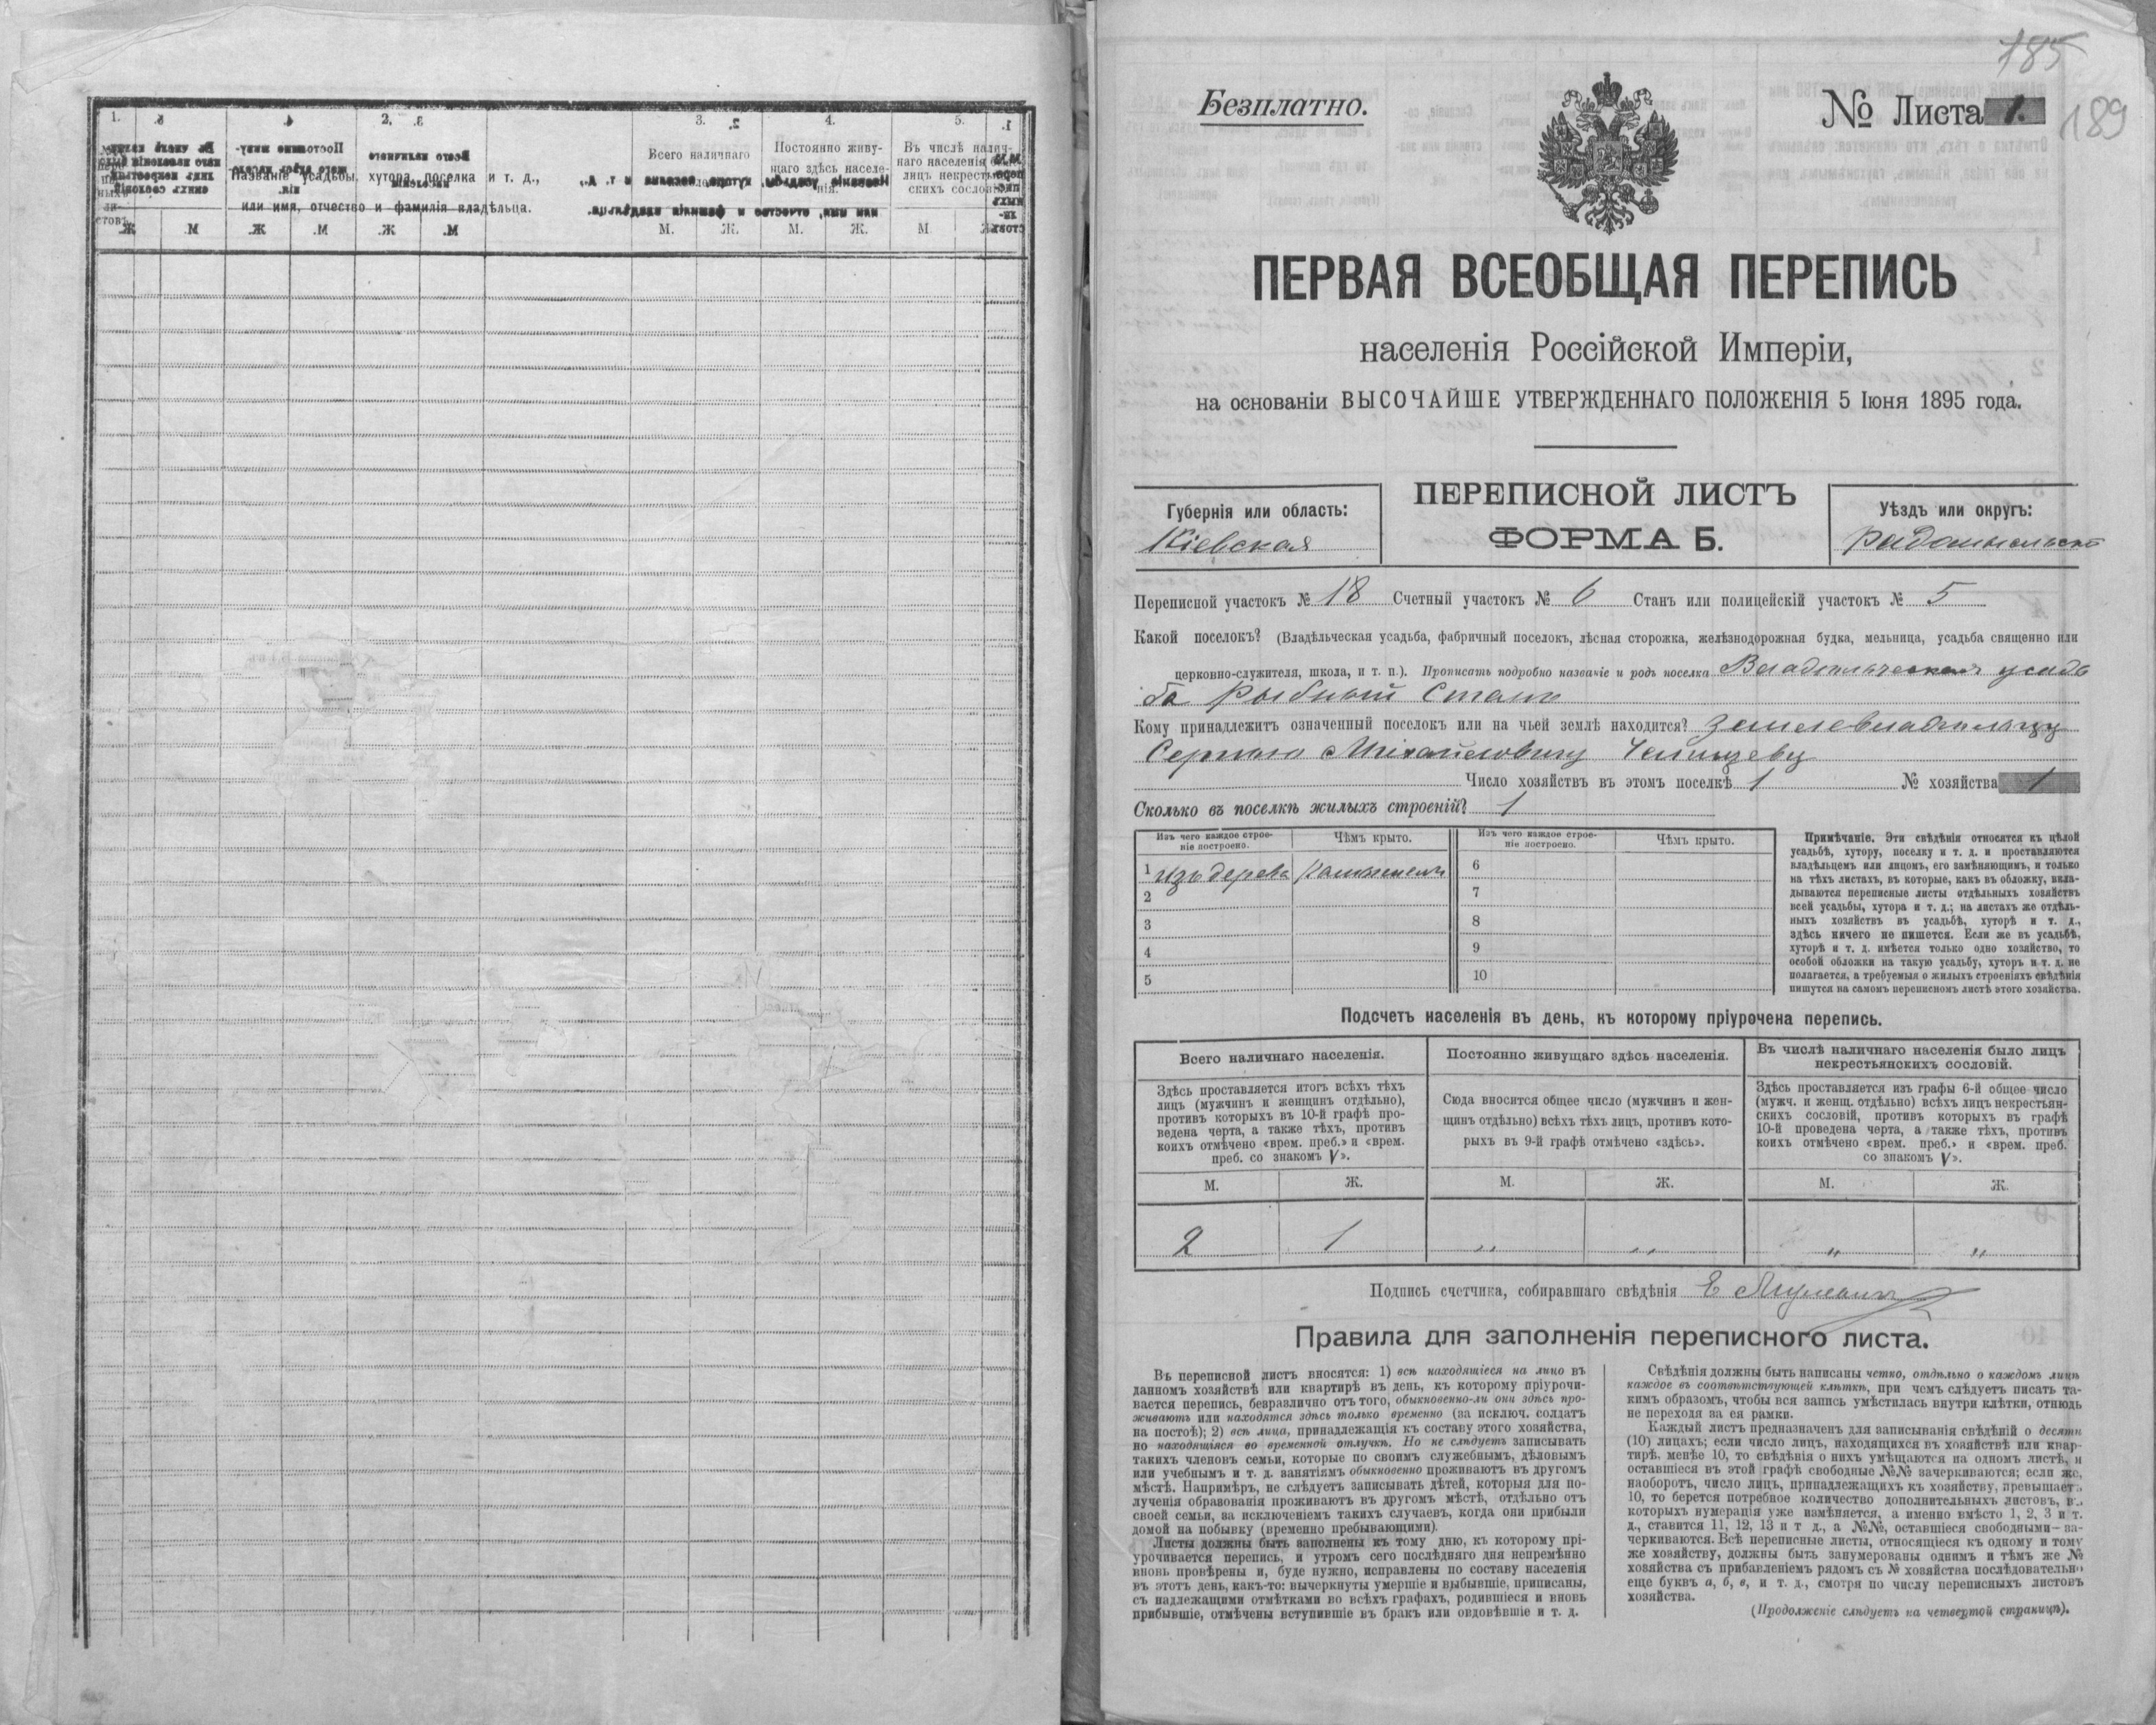 1.
2.
3.
4.
5.
Названіе усадьбы, хутора, поселка и т. д.,
или имя, отчество и фамилія владѣльца.
Всего наличнаго
Постоянно живу-
щаго здѣсь населе-
нія.
Въ числѣ налич-
наго населенія
лицъ
скихъ
М. Ж. М. Ж. М
185
189
Безплатно.
№ Листа 1.
ПЕРВАЯ ВСЕОБЩАЯ ПЕРЕПИСЬ
населенія Россійской Имперіи,
на основаніи ВЫСОЧАЙШЕ УТВЕРЖДЕННАГО ПОЛОЖЕНІЯ 5 Іюня 1895 года.
ПЕРЕПИСНОЙ ЛИСТЪ
ФОРМА Б.
Губернія или область:
Кіевская
Уѣздъ или округъ:
Переписной участокъ № 18 Счетный участокъ № 6 Станъ или полицейскій участокъ № 5
Какой поселокъ? (Владѣльческая усадьба, фабричный поселокъ, лѣсная сторожка, желѣзнодорожная будка, мельница, усадьба священно или
церковно-служителя, школа, и т. п.). Прописать подробно названіе и родъ поселка Владѣльческая усадь
ба Рыбный
Кому принадлежитъ означенный поселокъ или на чьей землѣ находится? Землевладѣльцу
Сергѣю Михайловичу
Число хозяйствъ въ этомъ поселкѣ 1 № хозяйства 1
Сколько въ поселкѣ жилыхъ строеній? 1
Изъ чего каждое строе-
ніе построено.
Чѣмъ крыто.
Изъ чего каждое строе-
ніе построено.
Чѣмъ крыто.
1 изъ дерева
2
3
4
5
6
7
8
9
10
Примѣчаніе. Эти свѣдѣнія относятся къ цѣлой
усадьбѣ, хутору, поселку и т. д. и проставляются
владѣльцемъ или лицомъ, его замѣняющимъ, и только
на тѣхъ листахъ, въ которые, какъ въ обложку, вкла-
дываются переписные листы отдѣльныхъ хозяйствъ
всей усадьбы, хутора и т. д.; на листахъ же отдѣль-
ныхъ хозяйствъ въ усадьбѣ, хуторѣ и т. д.,
здѣсь ничего не пишется. Если же въ усадьбѣ,
хуторѣ и т. д. имѣется только одно хозяйство, то
особой обложки на такую усадьбу, хуторъ и т. д. не
полагается, а требуемыя о жилыхъ строеніяхъ свѣдѣнія
пишутся на самомъ переписномъ листѣ этого хозяйства.
Подсчетъ населенія въ день, къ которому пріурочена перепись.
Всего наличнаго населенія.
Здѣсь проставляется итогъ всѣхъ тѣхъ
лицъ (мужчинъ и женщинъ отдѣльно),
противъ которыхъ въ 10-й графѣ про-
ведена черта, а также тѣхъ, противъ
коихъ отмѣчено «врем. преб.» и «врем.
преб. со знакомъ V».
Постоянно живущаго здѣсь населенія.
Сюда вносится общее число (мужчинъ и жен-
щинъ отдѣльно) всѣхъ тѣхъ лицъ, противъ кото-
рыхъ въ 9-й графѣ отмѣчено «здѣсь».
Въ числѣ наличнаго населенія было лицъ
некрестьянскихъ сословій.
Здѣсь проставляется изъ графы 6-й общее число
(мужч. и женщ. отдѣльно) всѣхъ лицъ некрестьян-
скихъ сословій, противъ которыхъ въ графѣ
10-й проведена черта, а также тѣхъ, противъ
коихъ отмѣчено «врем. преб.» и «врем. преб.
со знакомъ V».
М. Ж. М. Ж. М. Ж.
2 1 „ „ „ „
Подпись счетчика, собиравшаго свѣдѣнія
Правила для заполненія переписного листа.
Въ переписной листъ вносятся: 1) всѣ находящіеся на лицо въ
данномъ хозяйствѣ или квартирѣ въ день, къ которому пріурочи-
вается перепись, безразлично отъ того, обыкновенно-ли они здѣсь про-
живаютъ или находятся здѣсь только временно (за исключ. солдатъ
на постоѣ); 2) всѣ лица, принадлежащія къ составу этого хозяйства,
но находящіяся во временной отлучкѣ. Но не слѣдуетъ записывать
такихъ членовъ семьи, которые по своимъ служебнымъ, дѣловымъ
или учебнымъ и т. д. занятіямъ обыкновенно проживаютъ въ другомъ
мѣстѣ. Напримѣръ, не слѣдуетъ записывать дѣтей, которыя для по-
лученія образованія проживаютъ въ другомъ мѣстѣ, отдѣльно отъ
своей семьи, за исключеніемъ такихъ случаевъ, когда они прибыли
домой на побывку (временно пребывающими).
Листы должны быть заполнены къ тому дню, къ которому прі-
урочивается перепись, и утромъ сего послѣдняго дня непремѣнно
вновь провѣрены и, буде нужно, исправлены по составу населенія
въ этотъ день, какъ-то: вычеркнуты умершіе и выбывшіе, приписаны,
съ надлежащими отмѣтками во всѣхъ графахъ, родившіеся и вновь
прибывшіе, отмѣчены вступившіе въ бракъ или овдовѣвшіе и т. д.
Свѣдѣнія должны быть написаны четко, отдѣльно о каждомъ лицѣ
каждое въ соотвѣтствующей клѣткѣ, при чемъ слѣдуетъ писать та-
кимъ образомъ, чтобы вся запись умѣстилась внутри клѣтки, отнюдь
не переходя за ея рамки.
Каждый листъ предназначенъ для записыванія свѣдѣній о десяти
(10) лицахъ; если число лицъ, находящихся въ хозяйствѣ или квар-
тирѣ, менѣе 10, то свѣдѣнія о нихъ умѣщаются на одномъ листѣ, и
оставшіеся въ этой графѣ свободные №№ зачеркиваются; если же,
наоборотъ, число лицъ, принадлежащихъ къ хозяйству, превышаетъ
10, то берется потребное количество дополнительныхъ листовъ, въ
которыхъ нумерація уже измѣняется, а именно вмѣсто 1, 2, 3 и т.
д., ставится 11, 12, 13 и т д., а №№, оставшіеся свободными—за-
черкиваются. Всѣ переписные листы, относящіеся къ одному и тому
же хозяйству, должны быть занумерованы однимъ и тѣмъ же №
хозяйства съ прибавленіемъ рядомъ съ № хозяйства послѣдовательно
еще буквъ а, б, в, и т. д., смотря по числу переписныхъ листовъ
хозяйства.
(Продолженіе слѣдуетъ на четвертой страницѣ).